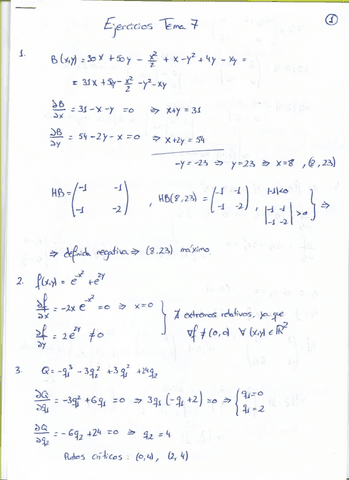 Ejercicios Tema 7
1
1.
B(x,y) = 30x + 50y - x²/2 + x - y² + 4y - xy =
= 31x + 54y - x²/2 - y² - xy
∂B/∂x = 31 - x - y = 0 ⇒ x+y = 31
∂B/∂y = 54 - 2y - x = 0 ⇒ x+2y = 54
-y = -23 ⇒ y = 23 ⇒ x = 8 , (8,23)
HB = (-1 -1; -1 -2) , HB(8,23) = (-1 -1; -1 -2) , |-1|<0 , |-1 -1; -1 -2| > 0 } ⇒
⇒ definida negativa ⇒ (8,23) máximo.
2. f(x,y) = e^{-x²} + e^{2y}
∂f/∂x = -2x e^{-x²} = 0 ⇒ x = 0
∂f/∂y = 2e^{2y} ≠ 0
} ∄ extremos relativos, ya que
∇f ≠ (0,0) ∀ (x,y) ∈ ℝ²
3. Q = -q₁³ - 3q₂² + 3q₁² + 24q₂
∂Q/∂q₁ = -3q₁² + 6q₁ = 0 ⇒ 3q₁(-q₁+2) = 0 ⇒ { q₁ = 0
q₁ = 2
∂Q/∂q₂ = -6q₂ + 24 = 0 ⇒ q₂ = 4
Puntos críticos: (0,4), (2,4)